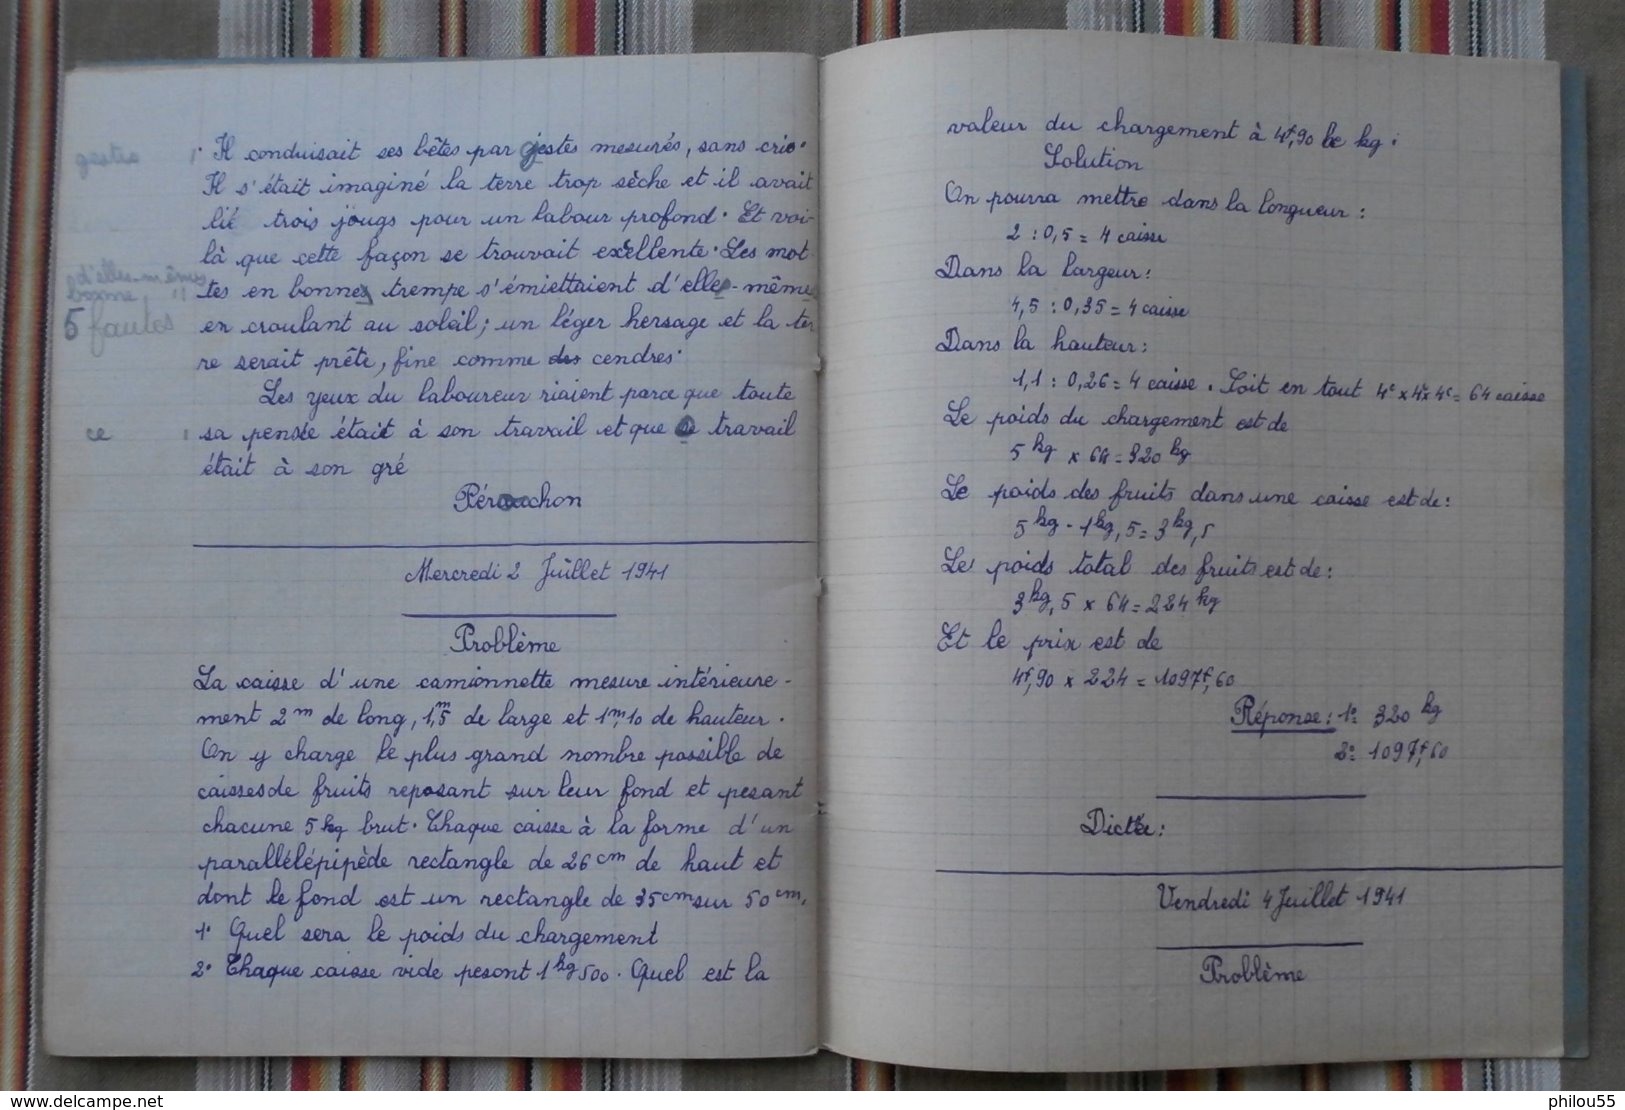 gestes
Il conduisait ses bêtes par gestes mesurés, sans cris.
Il s'était imaginé la terre trop sèche et il avait
lié trois jougs pour un labour profond. Et voi-
là que cette façon se trouvait excellente. Les mot
d'elles-mêmes
bonne, "
tes en bonnes trempe s'émiettaient d'elles-mêmes
5 fautes
en croulant au soleil; un léger hersage et la ter
re serait prête, fine comme des cendres.
Les yeux du laboureur riaient parce que toute
ce
sa pensée était à son travail et que travail
était à son gré
Pérochon
Mercredi 2 Juillet 1941
Problème
La caisse d'une camionnette mesure intérieure-
ment 2m de long, 1,m5 de large et 1m,10 de hauteur.
On y charge le plus grand nombre possible de
caisses de fruits reposant sur leur fond et pesant
chacune 5 kg brut. Chaque caisse à la forme d'un
parallélépipède rectangle de 26 cm de haut et
dont le fond est un rectangle de 35 cm sur 50 cm.
1° Quel sera le poids du chargement
2° Chaque caisse vide pesont 1 kg 500. Quel est la
valeur du chargement à 4f,90 le kg:
Solution
On pourra mettre dans la longueur:
2 : 0,5 = 4 caisse
Dans la largeur:
4,5 : 0,35 = 4 caisse
Dans la hauteur:
1,1 : 0,26 = 4 caisse. Soit en tout 4c x 4c x 4c = 64 caisse
Le poids du chargement est de
5 kg x 64 = 320 kg
Le poids des fruits dans une caisse est de:
5 kg - 1 kg,5 = 3 kg,5
Le poids total des fruits est de:
3 kg,5 x 64 = 224 kg
Et le prix est de
4f,90 x 224 = 1097f,60
Réponse: 1° 320 kg
2° 1097f,60
Dictée:
Vendredi 4 Juillet 1941
Problème
delcampe.net
philou55